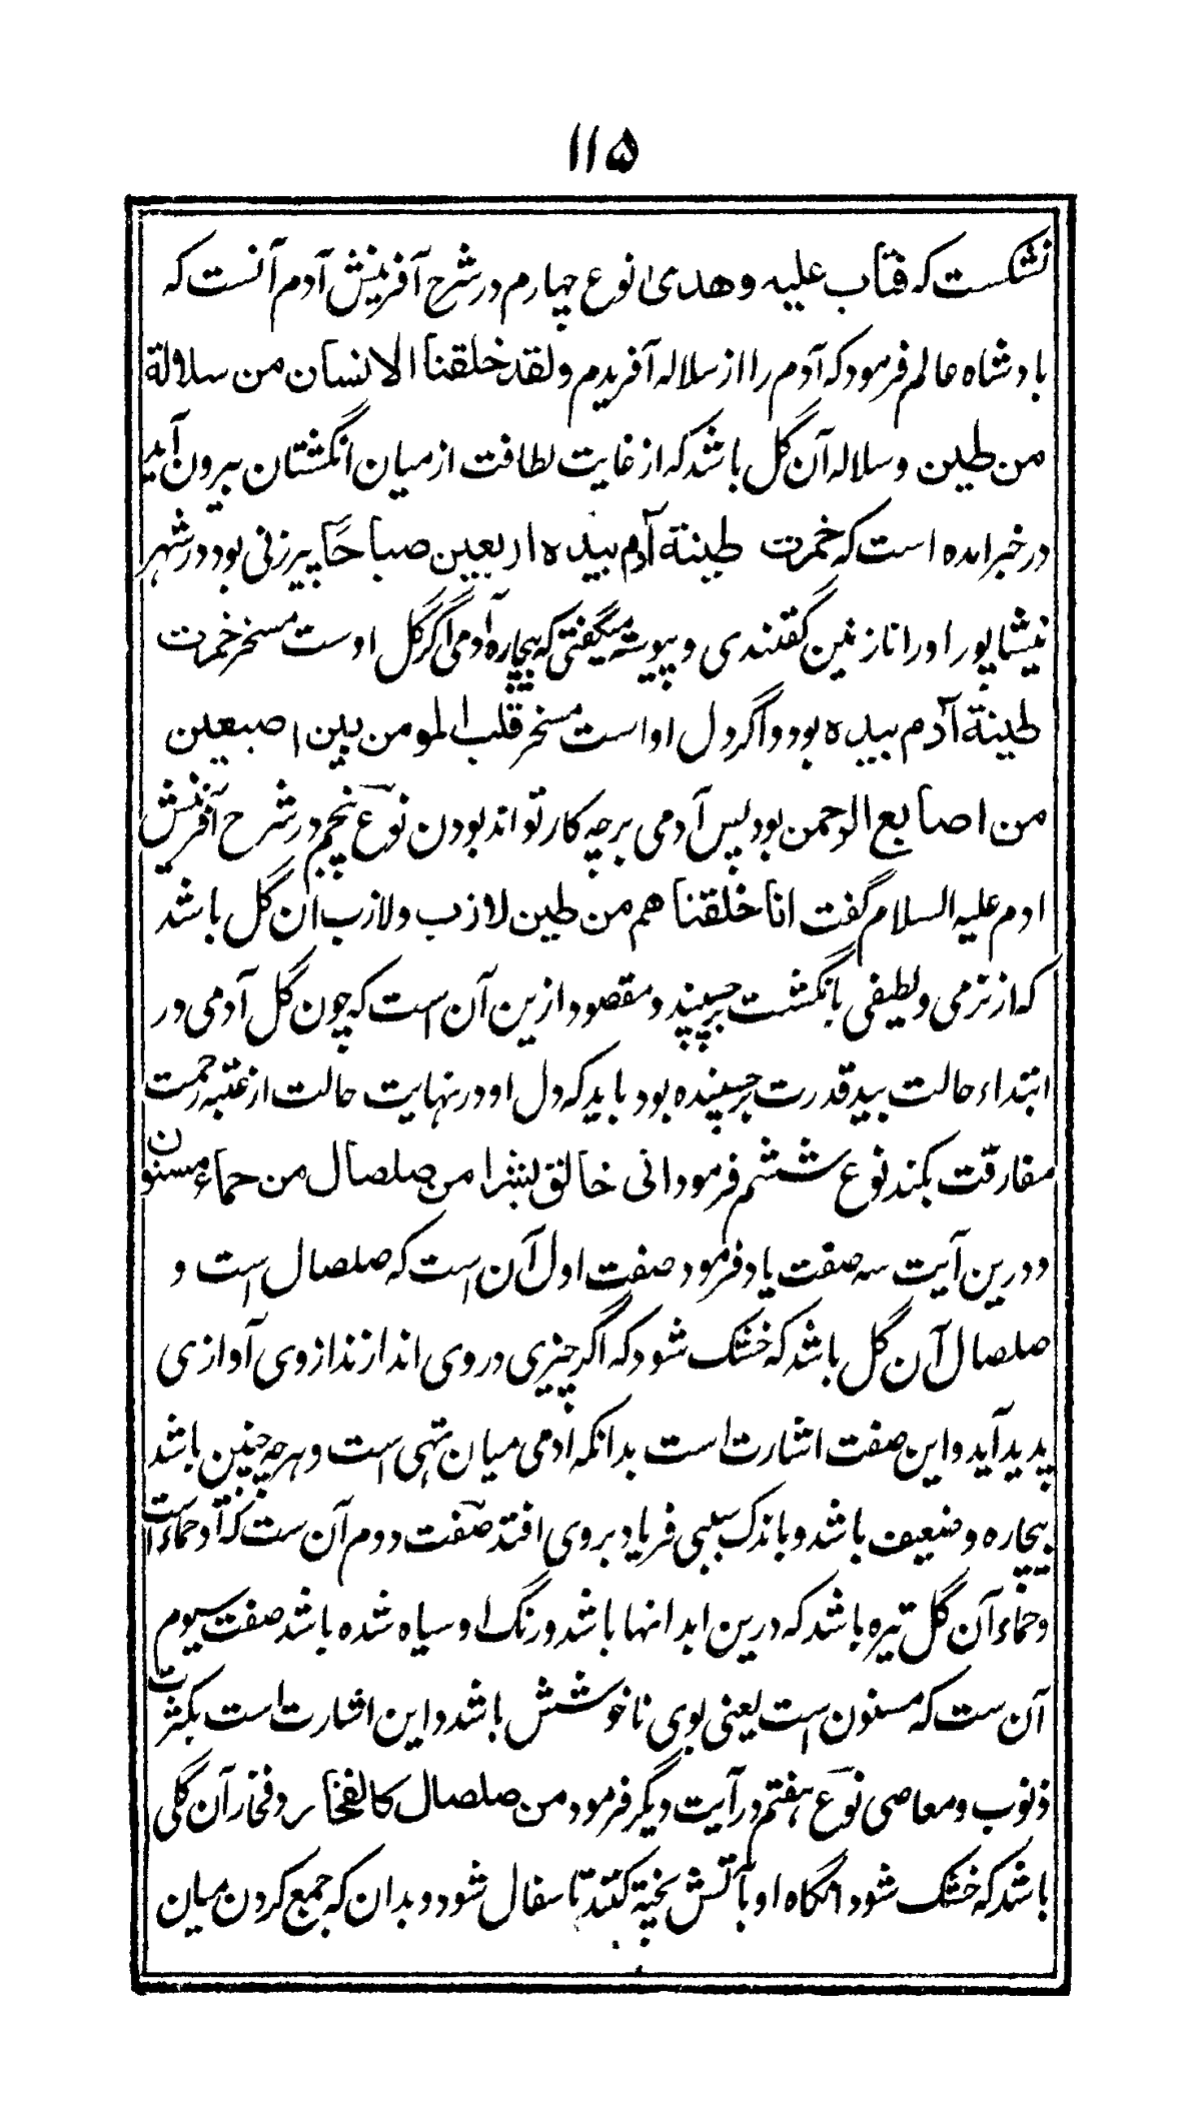 ۱۱۵
نشکست که فتاب علیه وهدی نوع چهارم در شرح آفرینش آدم آنست که
بادشاه عالم فرمود که آدم را از سلاله آفریدم ولقد خلقنا الانسان من سلالة
من طین وسلاله آن گل باشد که از غایت لطافت از میان انگشتان بیرون آید
در خبر امده است که خمرت طینة آدم بیده اربعین صباحًا پیرزنی بود در شهر
نیشاپور او را نازنین گفتندی و پیوسته میگفتی که بیچاره آدمی اگر گل اوست مسخر خمرت
طینة آدم بیده بود واگر دل او است مسخر قلب المومن بین اصبعین
من اصابع الرحمن بود پس آدمی بر چه کار تواند بودن نوع پنجم در شرح آفرینش
ادم علیه السلام گفت انا خلقنا هم من طین لازب ولازب ان گل باشد
که از نرمی ولطیفی بانگشت برچسپند و مقصود ازین آن است که چون گل آدمی در
ابتداء حالت بید قدرت برچسپنده بود باید که دل او در نهایت حالت از عتبه رحمت
مفارقت نکند نوع ششم فرمود انی خالق بشرا من صلصال من حماء مسنون
و درین آیت سه صفت یاد فرمود صفت اول آن است که صلصال است و
صلصال آن گل باشد که خشک شود که اگر چیزی در وی اندازند از وی آوازی
پدید آید و این صفت اشارت است بدانکه ادمی میان تهی است و هرچه چنین باشد
بیچاره و ضعیف باشد و باندک سببی فریاد بروی افتد صفت دوم آن ست که او حماء است
و حماء آن گل تیره باشد که درین ابدانها باشد و رنگ او سیاه شده باشد صفت سیوم
آن ست که مسنون است یعنی بوی ناخوشش باشد و این اشارت است بکثرت
ذنوب و معاصی نوع هفتم در آیت دیگر فرمود من صلصال کالفخار و فخار آن گلی
باشد که خشک شود انگاه او بآتش پخته کنند تا سفال شود و بدان که جمع کردن میان